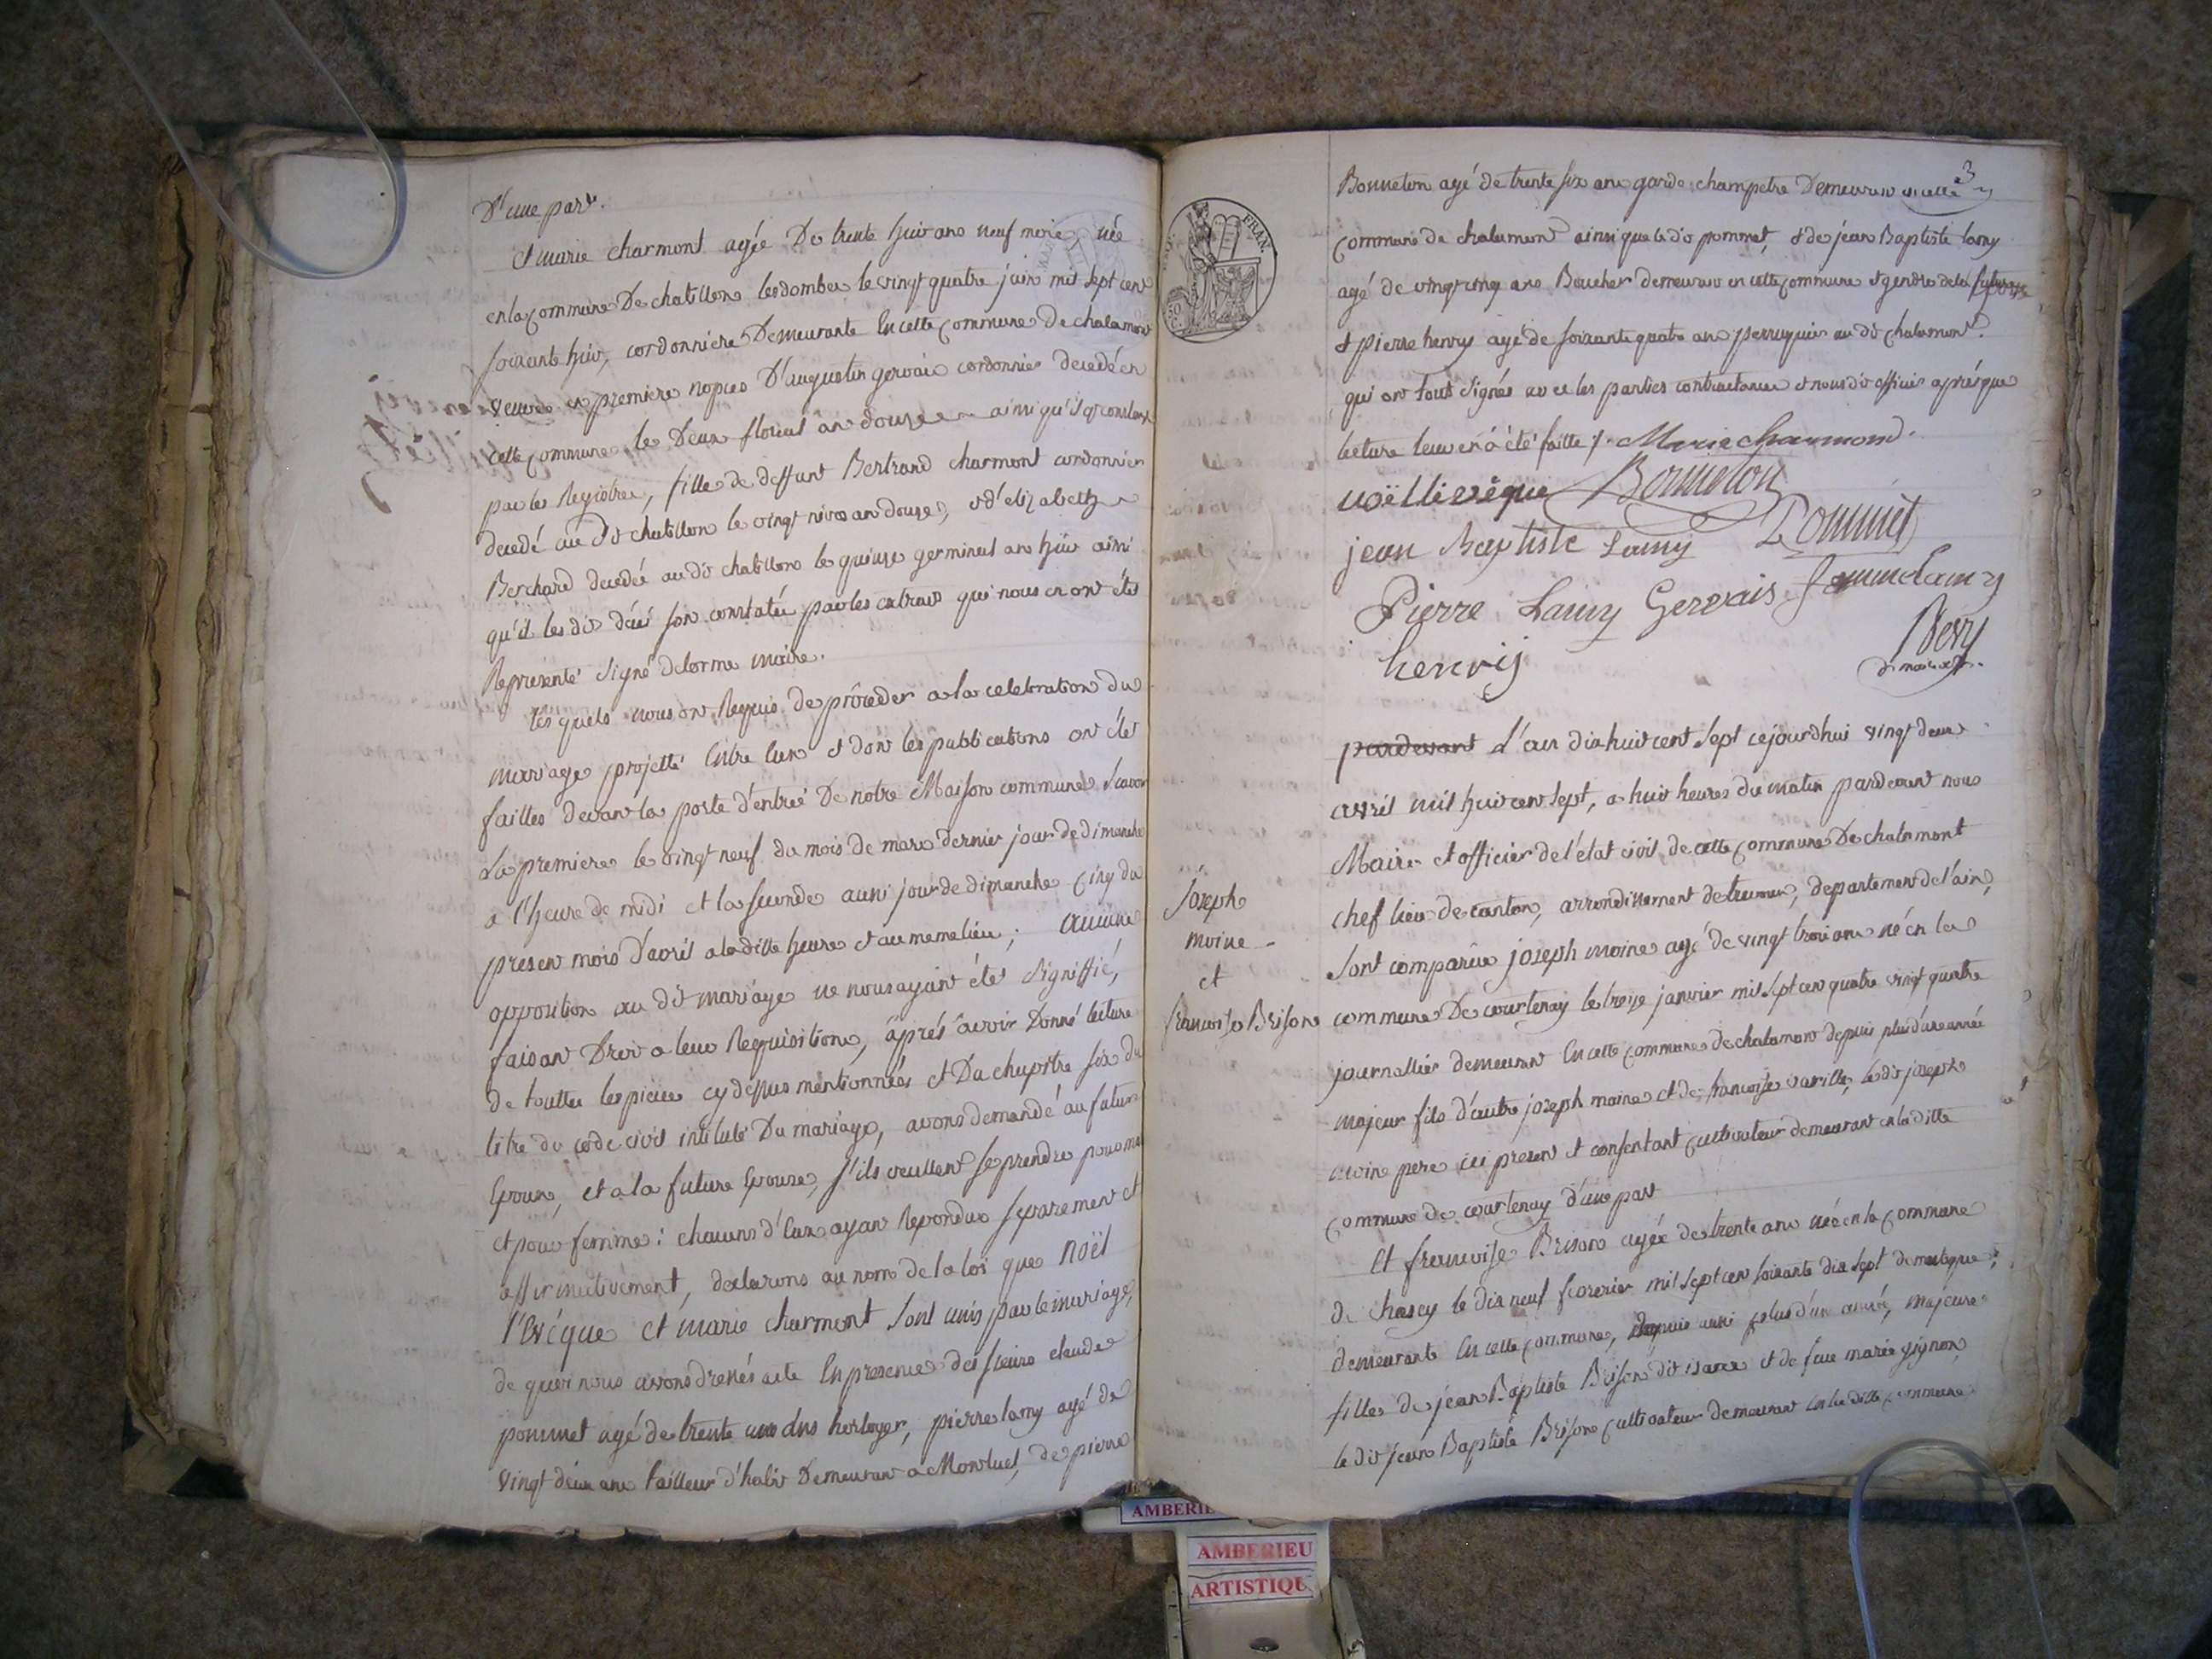 D'une part.
et marie charmont agée De trente huit ans neuf mois, née
en la commune De chatillon lesdombes le vingt quatre juin mil sept cent
soixante huit, cordonniere Demeurante En cette commune de chalamont
veuve en premiere nopces D'augustin gervais cordonnier decedé en
cette commune le Deux floreal an douze ainsi qu'il est constaté
par les Registres, fille de deffunt Bertrand charmont cordonnier
decedé au dit chatillon le vingt nivos an douze, & d'elizabeth
Berchard decedée au dit chatillon le quinze germinal an huit ainsi
qu'il les dits décés sont constatés par les extraits qui nous en ont étés
Representé signé delorme maire.
Les quels nous ont Requis de procéder a la celebration du
mariage projetté Entre Eux & dont les publications ont étés
faittes devant la porte d'entrée De notre Maison commune Scavoir
La premiere le vingt neuf du mois de mars dernier jour de dimanche
a l'heure de midi et la seconde aussi jour de dimanche cinq du
present mois d'avril a laditte heure et au meme lieu; aucune
opposition au dit mariage ne nous ayant étés signiffié,
faisant Droit a leur Requisition, aprés avoir Donné lecture
de touttes les pieces cy dessus mentionnées et Du chapitre six du
titre du code civil intitulé Du mariage, avons demandé au futur
Epoux, et a la future Epouse, s'ils veullent se prendre pour mari
et pour femme: chacuns d'Eux ayant Repondus separement et
affirmativement, declarons au nom de la loi que noël
l'Evéque et marie charmont sont unis par le mariage,
de quoi nous avons dressés acte En presence des sieurs claude
pommet agé de trente ans horloger, pierre lamy agé de
vingt deux ans tailleur d'habit Demeurant a Montluel, de pierre
3
Bonneton agé de trente six ans garde champetre Demeurant en cette
commune de chalamont ainsi que le dit pommet, & de jean Baptiste lamy
agé de vingt cinq ans Boucher demeurant en cette commune & gendre de la future
& pierre henry agé de soixante quatre ans perruquier au dit chalamont.
qui ont tous signés avec les parties contractantes et nous dit officier aprés que
lecture leur en a été faitte /. Marie charmond.
noël lévêque Bonneton
jean Baptiste Lamy Pommet
Pierre Lamy Gervais femme lamy
henrij
FRAN.
pardevant L'an dix huit cent sept cejourdhui vingt deux
avril mil huit cent sept, a huit heures du matin pardevant nous
Maire et officier de l'état civil de cette commune De chalamont
chef lieu de canton, arrondissement de trevoux, departement de l'ain,
Joseph
moine
et
francoise Brison
sont comparûs joseph moine agé de vingt trois ans né en la
commune De courtenay le treize janvier mil sept cent quatre vingt quatre
journallier demeurant En cette commune de chalamont depuis plus d'une année
majeur fils d'autre joseph moine et de francoise le dit joseph
moine pere ici present et consentant cultivateur demeurant en laditte
commune de courtenay d'une part
Et francoise Brison agée de trente ans née en la commune
de le dix neuf fevrier mil sept cent soixante dix sept
demeurante En cette commune, depuis aussi plus d'un année, majeure
fille de jean Baptiste Brison dit et de feue marie gignon
le dit jean Baptiste Brison cultivateur demeurant en laditte commune
AMBERIEU
ARTISTIQU